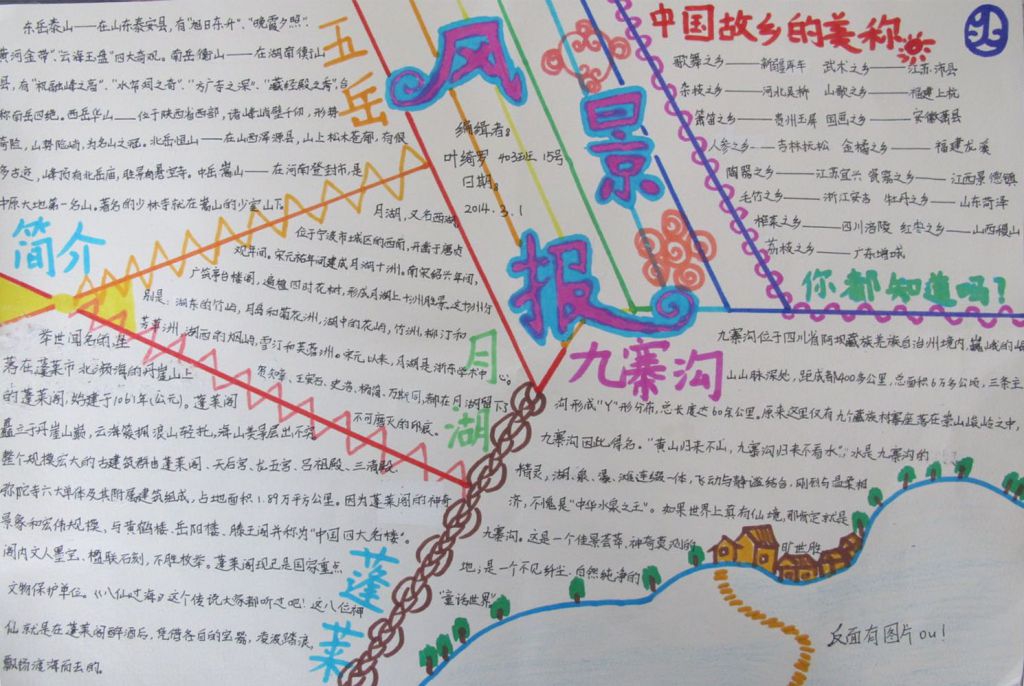 五岳
东岳泰山——在山东泰安县,有"旭日东升"、"晚霞夕照"、
黄河金带"、"云海玉盘"四大奇观。南岳衡山——在湖南衡山
县,有"祝融峰之高"、"水帘洞之奇"、"方广寺之深"、"藏经殿之秀",合
称南岳四绝。西岳华山——位于陕西省西部,诸峰峭壁千仞,形势
奇险,山势险峭,为名山之冠。北岳恒山——在山西浑源县,山上松木苍郁,有很
多古迹,峰顶有北岳庙,胜景有悬空寺。中岳嵩山——在河南登封市,是
中原大地第一名山。著名的少林寺就在嵩山的少室山下
简介
风景报
编缉者:
叶绮罗 403班 15号
日期:
2014.3.1
中国故乡的美称
歌舞之乡——新疆库车 武术之乡——江苏沛县
杂技之乡——河北吴桥 山歌之乡——福建上杭
箫笛之乡——贵州玉屏 国画之乡——安徽萧县
人参之乡——吉林抚松 金橘之乡——福建龙溪
陶器之乡——江苏宜兴 瓷器之乡——江西景德镇
毛竹之乡——浙江安吉 牡丹之乡——山东菏泽
榨菜之乡——四川涪陵 红枣之乡——山西稷山
荔枝之乡——广东增城
你都知道吗?
月湖
月湖,又名西湖,
位于宁波市城区的西南,开凿于唐贞
观年间。宋元祐年间建成月湖十洲。南宋绍兴年间,
广筑亭台楼阁,遍植四时花树,形成月湖上十洲胜景。这十洲分
别是:湖东的竹屿、月岛和菊花洲,湖中的花屿、竹洲、柳汀和
芳草洲,湖西的烟屿、雪汀和芙蓉洲。宋元以来,月湖是浙东学术中心。
贺知章、王安石、史浩、杨简、万斯同,都在月湖留下了
不可磨灭的印痕。
蓬莱
举世闻名的坐
落在蓬莱市北濒海的丹崖山上
的蓬莱阁,始建于1061年(公元)。蓬莱阁
矗立于丹崖山巅,云海簇拥,浪山轻托,海山类景层出不穷
整个规模宏大的古建筑群由蓬莱阁、天后宫、龙五宫、吕祖殿、三清殿、
弥陀寺六大单体及其附属建筑组成,占地面积1.89万平方公里。因为蓬莱阁的神奇
景象和宏伟规模、与黄鹤楼、岳阳楼、滕王阁并称为"中国四大名楼"。
阁内文人墨宝、楹联石刻,不胜枚举。蓬莱阁现已是国家重点
文物保护单位。《八仙过海》这个传说大家都听过吧!这八位神
仙就是在蓬莱阁醉酒后,凭借各自的宝器,凌波踏浪,
飘扬渡海而去的。
九寨沟
九寨沟位于四川省阿坝藏族羌族自治州境内,巍峨的岷
山山脉深处,距成都400多公里,总面积6万多公顷,三条主
沟形成"Y"形分布,总长度达60余公里。原来这里仅有九个藏族村寨座落在崇山峻岭之中,
九寨沟因此得名。"黄山归来不山,九寨沟归来不看水",水是九寨沟的
精灵,湖、泉、瀑、滩连缀一体,飞动与静谧结合,刚烈与温柔相
济,不愧是"中华水景之王"。如果世界上真有仙境,那肯定就是
九寨沟。这是一个佳景荟萃、神奇莫测的旷世胜
地;是一个不见纤尘、自然纯净的
"童话世界"
反面有图片ou!